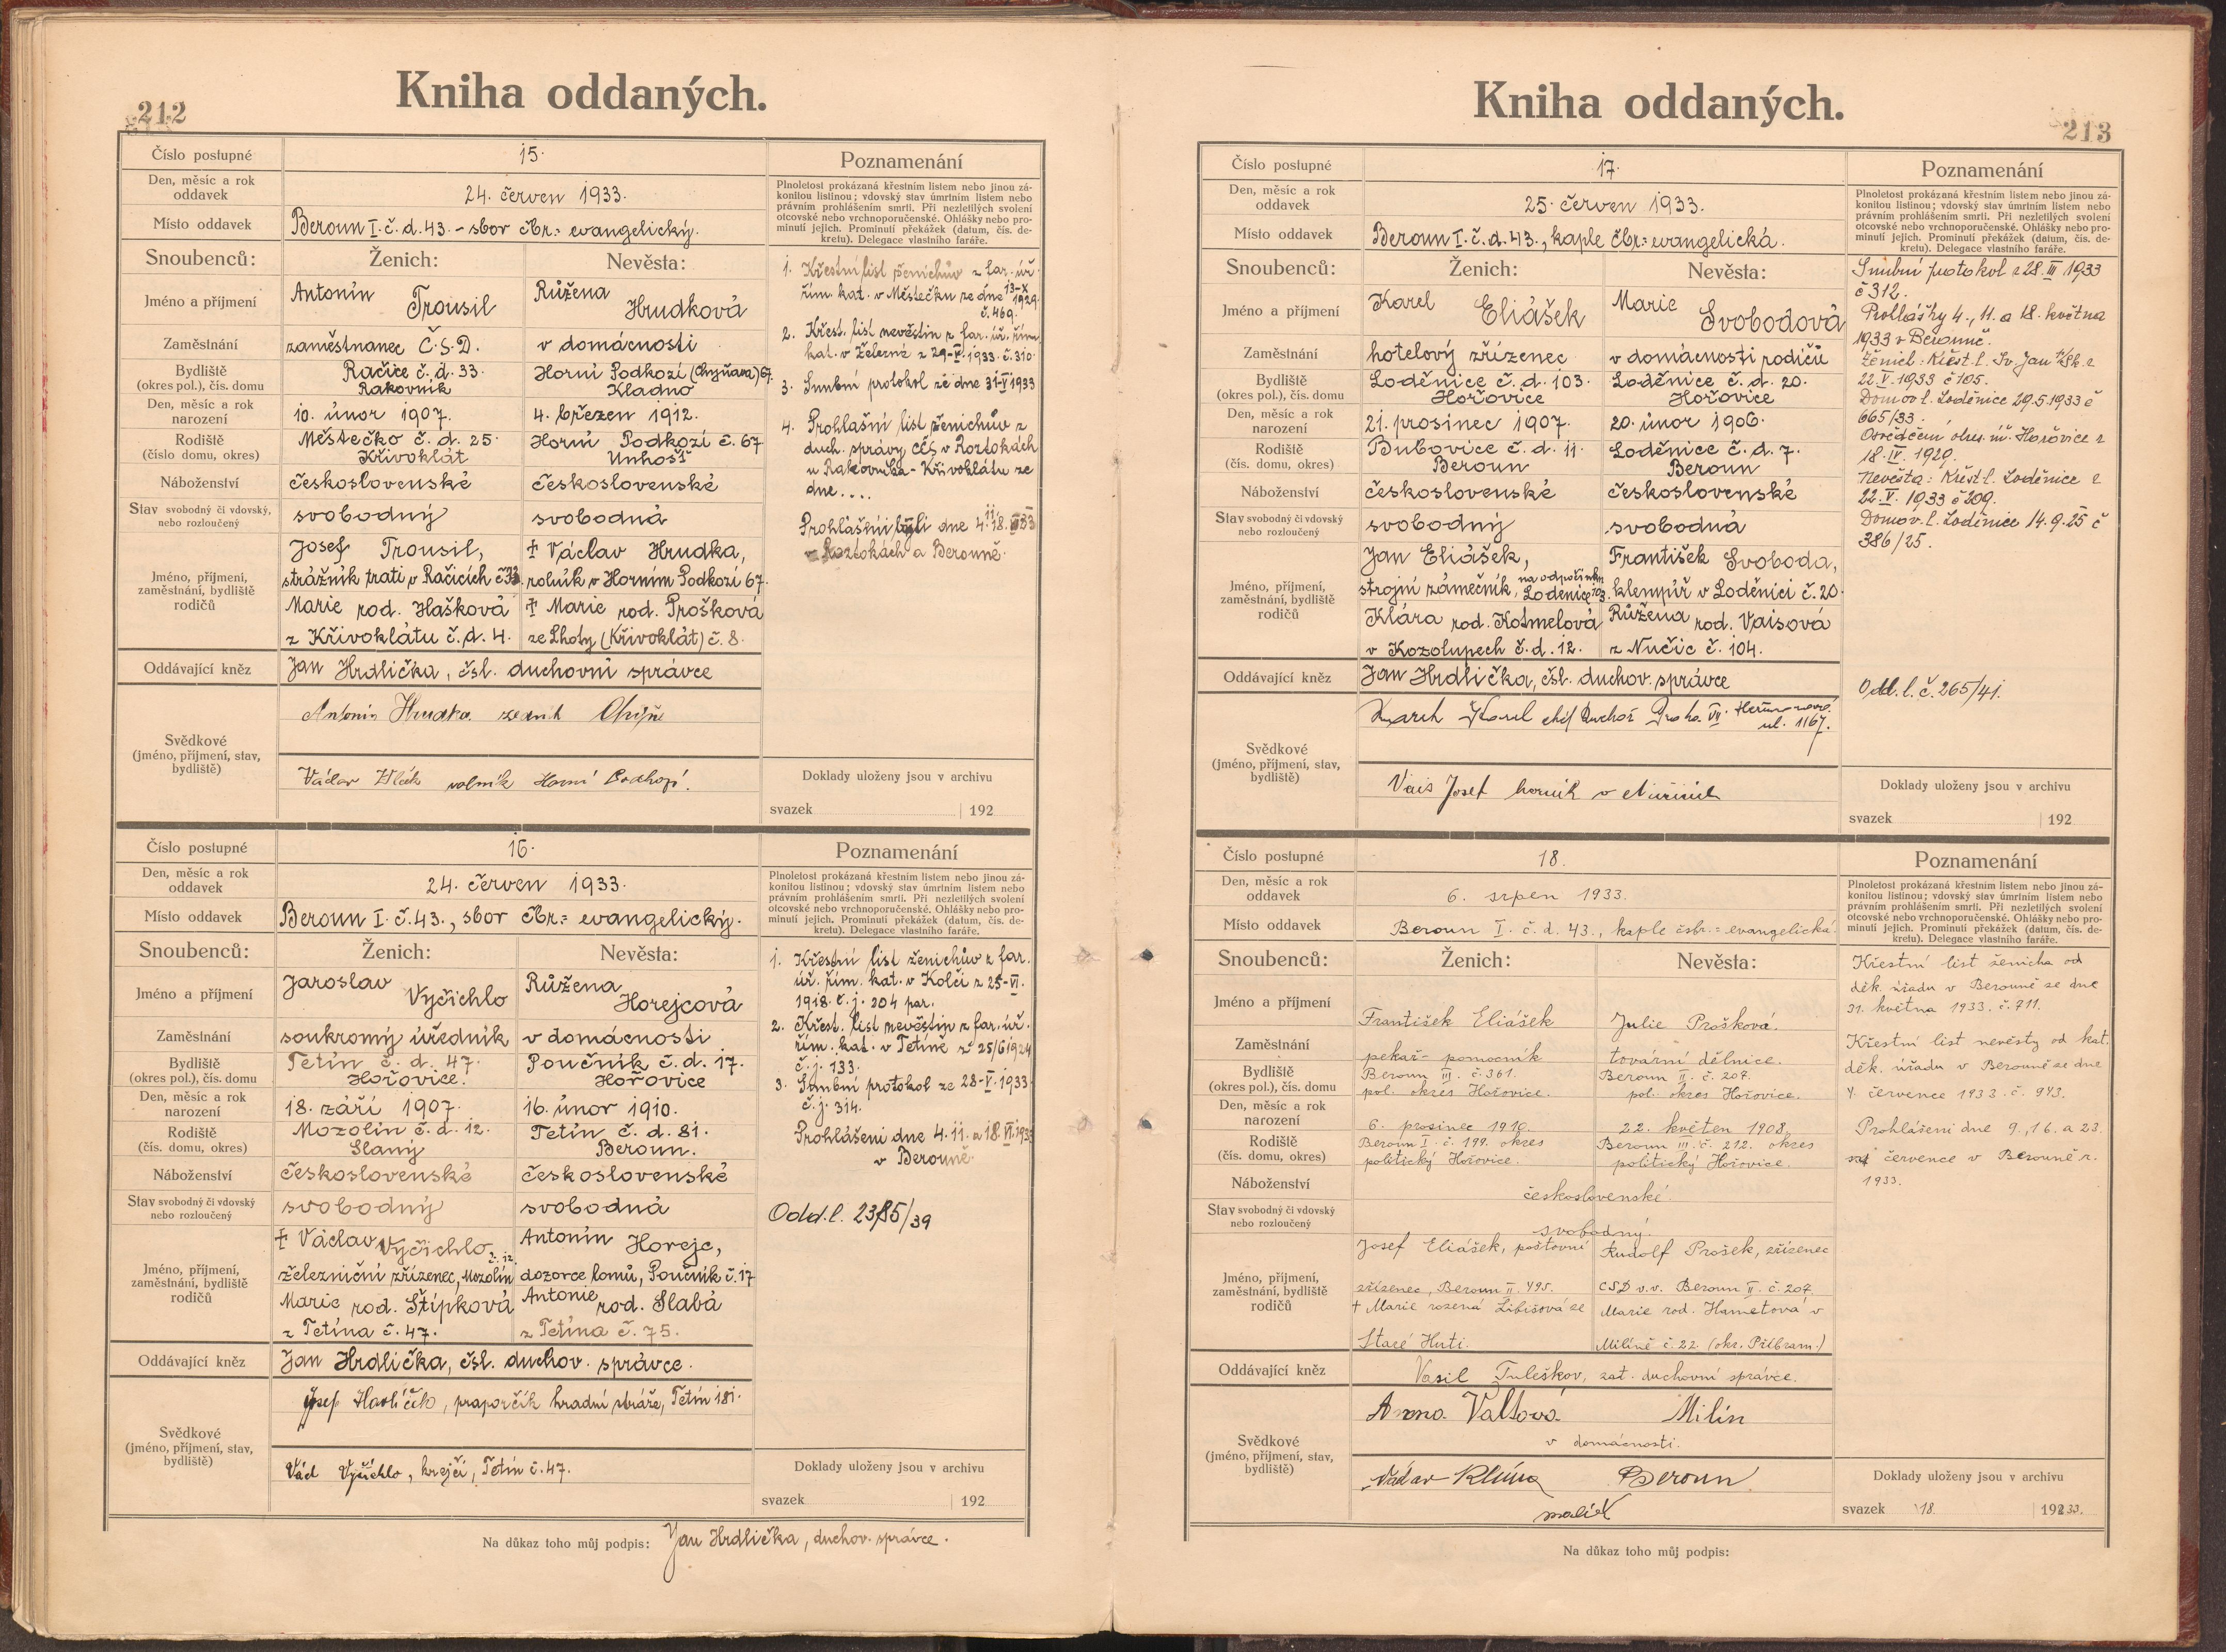 212
Kniha oddaných.
Číslo postupné 15. Poznamenání
Den, měsíc a rok oddavek 24. červen 1933.
Plnoletost prokázaná křestním listem nebo jinou zá-
konitou listinou; vdovský stav úmrtním listem nebo
právním prohlášením smrti. Při nezletilých svolení
otcovské nebo vrchnoporučenské. Ohlášky nebo pro-
minutí jejich. Prominutí překážek (datum, čís. de-
kretu). Delegace vlastního faráře.
Místo oddavek Beroun I. č. d. 43. - sbor čbr.= evangelický.
Snoubenců: Ženich: Nevěsta:
Jméno a příjmení Antonín Trousil Růžena Hrudková
Zaměstnání zaměstnanec Č.S.D. v domácnosti
Bydliště Račice č. d. 33. Horní Podkozí (Chyňava) 67.
(okres pol.), čís. domu Rakovník Kladno
Den, měsíc a rok narození 10. únor 1907. 4. březen 1912.
Rodiště Městečko č. d. 25. Horní Podkozí č. 67
(číslo domu, okres) Křivoklát Unhošť
Náboženství československé československé
Stav svobodný či vdovský, nebo rozloučený svobodný svobodná
Jméno, příjmení, zaměstnání, bydliště rodičů
Josef Trousil, † Václav Hrudka,
strážník trati v Račicích č. 33. rolník v Horním Podkozí 67.
Marie rod. Hašková † Marie rod. Prošková
z Křivoklátu č. d. 4. ze Lhoty (Křivoklát) č. 8.
Oddávající kněz Jan Hrdlička, čsl. duchovní správce
Svědkové
(jméno, příjmení, stav, bydliště)
Antonín Hrudka
Václav rolník Horní
1. Křestní list ženichův z far. úř.
řím. kat. v Městečku ze dne 13-X 1929.
č. 469.
2. Křest. list nevěstin z far. úř. řím.
kat. v Železné z 29-V. 1933. č. 310.
3. Snubní protokol ze dne 31-V 1933
4. Prohlašní list ženichův z
duch. správy CČS v Roztokách
u Rakovníka - Křivoklátu ze
dne....
Prohlášeni byli dne 4. 11. 18. VI 33
v Roztokách a Berouně.
Doklady uloženy jsou v archivu
svazek 192
Číslo postupné 16. Poznamenání
Den, měsíc a rok oddavek 24. červen 1933.
Plnoletost prokázaná křestním listem nebo jinou zá-
konitou listinou; vdovský stav úmrtním listem nebo
právním prohlášením smrti. Při nezletilých svolení
otcovské nebo vrchnoporučenské. Ohlášky nebo pro-
minutí jejich. Prominutí překážek (datum, čís. de-
kretu). Delegace vlastního faráře.
Místo oddavek Beroun I. č. 43., sbor čbr.= evangelický.
Snoubenců: Ženich: Nevěsta:
Jméno a příjmení Jaroslav Vyčichlo Růžena Horejcová
Zaměstnání soukromý úředník v domácnosti
Bydliště Tetín č. d. 47. Poučník č. d. 17.
(okres pol.), čís. domu Hořovice. Hořovice
Den, měsíc a rok narození 18. září 1907. 16. únor 1910.
Rodiště Mozolín č. d. 12. Tetín č. d. 81.
(čís. domu, okres) Slaný Beroun.
Náboženství československé československé
Stav svobodný či vdovský nebo rozloučený svobodný svobodná
Jméno, příjmení, zaměstnání, bydliště rodičů
† Václav Vyčichlo, Antonín Horejc,
železniční zřízenec, Mozolín č. 12. dozorce lomů, Poučník č. 17
Marie rod. Štípková Antonie rod. Slabá
z Tetína č. 47. z Tetína č. 75.
Oddávající kněz Jan Hrdlička, čsl. duchov. správce.
Svědkové
(jméno, příjmení, stav, bydliště)
Josef Havlíček, praporčík hradní stráže, Tetín 181.
Václ Vyčichlo, krejčí, Tetín č. 47.
1. Křestní list ženichův z far.
úř. řím. kat. v Kolči z 25-VI.
1918. č. j. 204 par.
2. Křest. list nevěstin z far. úř.
řím. kat. v Tetíně z 25/6 1924
č. j. 133.
3. Snubní protokol ze 28-V. 1933.
č. j. 314.
Prohlášeni dne 4. 11. a 18. VI. 1933
v Berouně.
Odd. l. 2385/39
Doklady uloženy jsou v archivu
svazek 192
Na důkaz toho můj podpis: Jan Hrdlička, duchov. správce.
213
Kniha oddaných.
Číslo postupné 17. Poznamenání
Den, měsíc a rok oddavek 25. červen 1933.
Plnoletost prokázaná křestním listem nebo jinou zá-
konitou listinou; vdovský stav úmrtním listem nebo
právním prohlášením smrti. Při nezletilých svolení
otcovské nebo vrchnoporučenské. Ohlášky nebo pro-
minutí jejich. Prominutí překážek (datum, čís. de-
kretu). Delegace vlastního faráře.
Místo oddavek Beroun I. č. d. 43., kaple čbr.= evangelická.
Snoubenců: Ženich: Nevěsta:
Jméno a příjmení Karel Eliášek Marie Svobodová
Zaměstnání hotelový zřízenec v domácnosti rodičů
Bydliště Loděnice č. d. 103. Loděnice č. d. 20.
(okres pol.), čís. domu Hořovice Hořovice
Den, měsíc a rok narození 21. prosinec 1907. 20. únor 1906.
Rodiště Bubovice č. d. 11. Loděnice č. d. 7.
(čís. domu, okres) Beroun Beroun
Náboženství československé československé
Stav svobodný či vdovský nebo rozloučený svobodný svobodná
Jméno, příjmení, zaměstnání, bydliště rodičů
Jan Eliášek, František Svoboda,
strojní zámečník na odpočinku, Loděnice 103. klempíř v Loděnici č. 20.
Klára rod. Kotmelová Růžena rod. Vaisová
v Kozolupech č. d. 12. z Nučic č. 104.
Oddávající kněz Jan Hrdlička, čsl. duchov. správce
Svědkové
(jméno, příjmení, stav, bydliště)
Karel Praha VII. ul. 1167.
Vais Josef horník v
Snubní protokol z 28. III 1933
č 312.
Prohlášky 4., 11. a 18. května
1933 v Berouně.
Ženich: Křest. l. Sv. Jan p/Sk. z
22. V. 1933 č 105.
Domov. l. Loděnice 29.5.1933 č
665/33.
Osvědčení okres. úř. Hořovice z
18. IV. 1929.
Nevěsta: Křest. l. Loděnice z
22. V. 1933 č 209.
Domov. l. Loděnice 14.9.25 č
386/25.
Odd. l. č. 265/41.
Doklady uloženy jsou v archivu
svazek 192
Číslo postupné 18. Poznamenání
Den, měsíc a rok oddavek 6. srpen 1933.
Plnoletost prokázaná křestním listem nebo jinou zá-
konitou listinou; vdovský stav úmrtním listem nebo
právním prohlášením smrti. Při nezletilých svolení
otcovské nebo vrchnoporučenské. Ohlášky nebo pro-
minutí jejich. Prominutí překážek (datum, čís. de-
kretu). Delegace vlastního faráře.
Místo oddavek Beroun I. č. d. 43., kaple čsbr.= evangelická.
Snoubenců: Ženich: Nevěsta:
Jméno a příjmení František Eliášek Julie Prošková.
Zaměstnání pekař-pomocník tovární dělnice.
Bydliště Beroun III. č. 361. Beroun II. č. 207.
(okres pol.), čís. domu pol. okres Hořovice. pol. okres Hořovice.
Den, měsíc a rok narození 6. prosinec 1910. 22. květen 1908.
Rodiště Beroun I. č. 199. okres Beroun III. č. 212. okres
(čís. domu, okres) politický Hořovice. politický Hořovice.
Náboženství československé.
Stav svobodný či vdovský nebo rozloučený svobodný.
Jméno, příjmení, zaměstnání, bydliště rodičů
Josef Eliášek, poštovní Rudolf Prošek, zřízenec
zřízenec, Beroun II. 495. ČSD v.v. Beroun II. č. 207.
† Marie rozená Libišová ze Marie rod. Hametová v
Staré Huti. Milíně č. 22. (okr. Příbram.)
Oddávající kněz Vasil Tuleškov, zat. duchovní správce.
Svědkové
(jméno, příjmení, stav, bydliště)
Anna Valtová Milín
v domácnosti.
Václav Klíma Beroun
malíř
Křestní list ženicha od
děk. úřadu v Berouně ze dne
31. května 1933. č. 711.
Křestní list nevěsty od kat.
děk. úřadu v Berouně ze dne
4. července 1933. č. 943.
Prohlášeni dne 9., 16. a 23.
července v Berouně r.
1933.
Doklady uloženy jsou v archivu
svazek 18. 1933.
Na důkaz toho můj podpis: